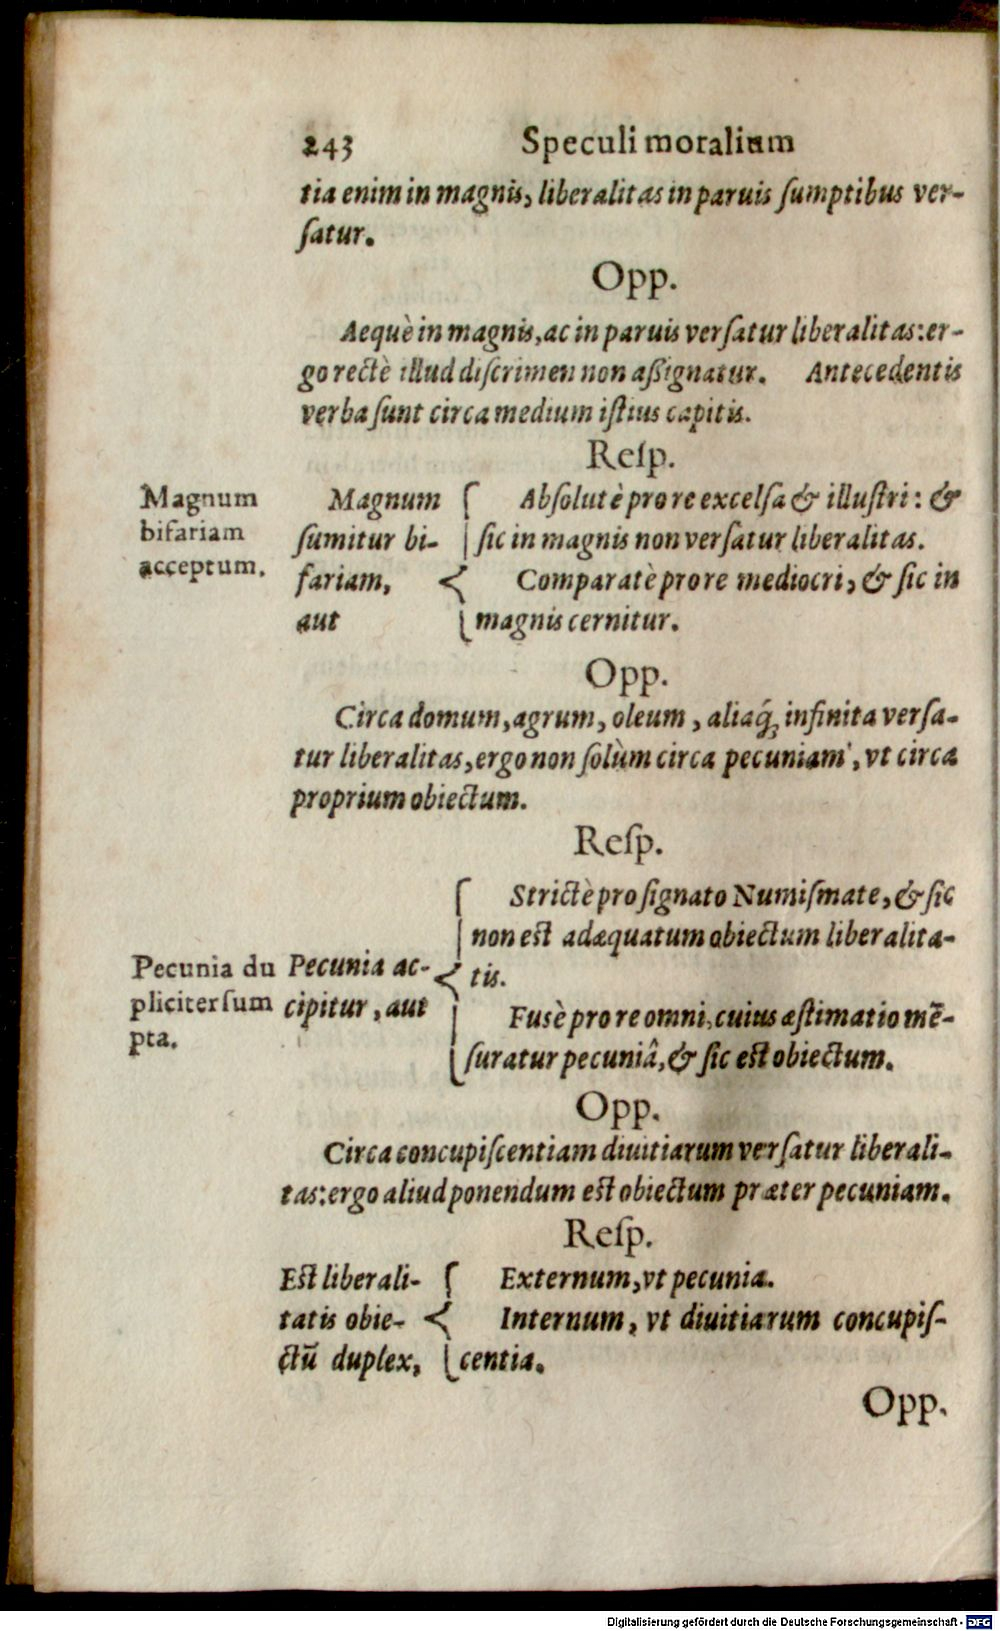 243 Speculi moralium
tia enim in magnis, liberalitas in paruis ſumptibus ver-
ſatur.
Opp.
Aequè in magnis, ac in paruis verſatur liberalitas: er-
go rectè illud diſcrimen non aßignatur. Antecedentis
verba ſunt circa medium iſtius capitis.
Reſp.
Magnum
bifariam
acceptum.
Magnum
ſumitur bi-
fariam,
aut
Abſolutè pro re excelſa & illuſtri: &
ſic in magnis non verſatur liberalitas.
Comparatè pro re mediocri, & ſic in
magnis cernitur.
Opp.
Circa domum, agrum, oleum, aliaq́; infinita verſa-
tur liberalitas, ergo non ſolùm circa pecuniam, vt circa
proprium obiectum.
Reſp.
Pecunia du
pliciter ſum
pta.
Pecunia ac-
cipitur, aut
Strictè pro ſignato Numiſmate, & ſic
non est adæquatum obiectum liberalita-
tis.
Fusè pro re omni, cuius æſtimatio mē-
ſuratur pecuniâ, & ſic est obiectum.
Opp.
Circa concupiſcentiam diuitiarum verſatur liberali-
tas: ergo aliud ponendum est obiectum præter pecuniam.
Reſp.
Est liberali-
tatis obie-
ctū duplex,
Externum, vt pecunia.
Internum, vt diuitiarum concupiſ-
centia.
Opp.
Digitalisierung gefördert durch die Deutsche Forschungsgemeinschaft - DFG